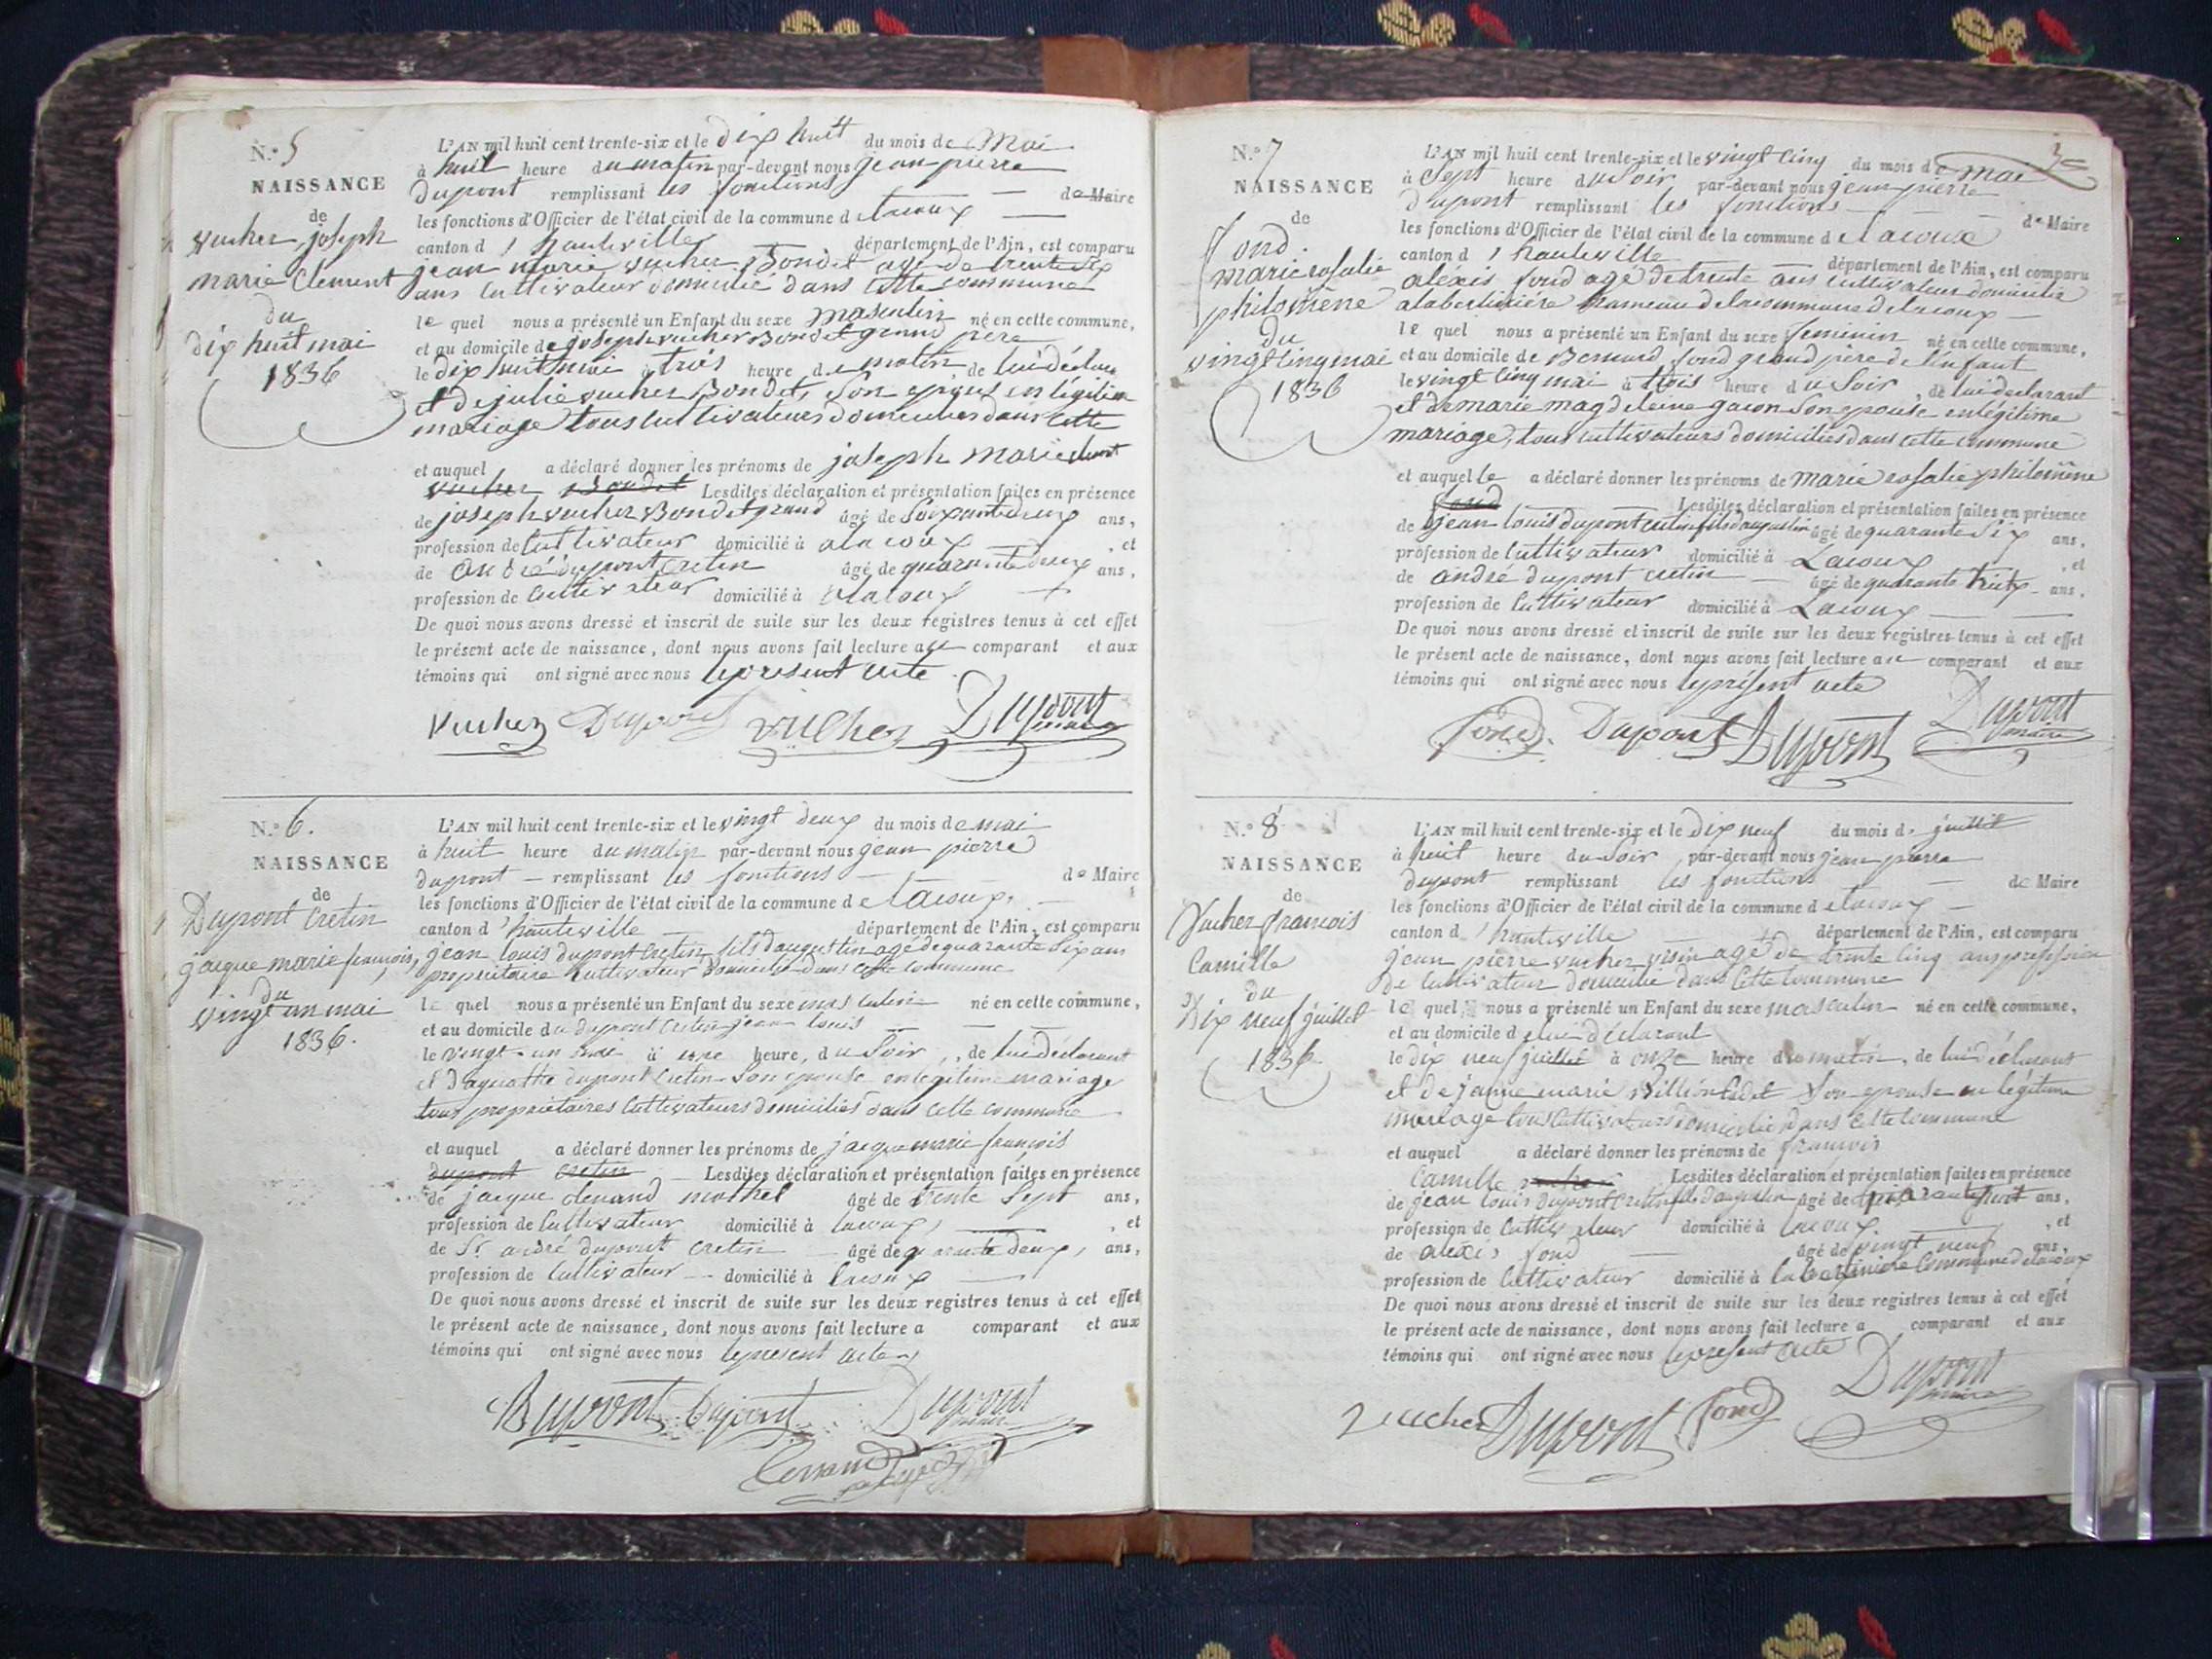 N.º 5
NAISSANCE
de
vucher, joseph
marie Clement
du
dix huit mai
1836
L'AN mil huit cent trente-six et le dix huit du mois de Mai
à huit heure du matin par-devant nous jean pierre
dupont remplissant les fonctions de Maire
les fonctions d'Officier de l'état civil de la commune de lacoux
canton d'hauteville département de l'Ain, est comparu
jean marie vucher Bondet agé de trente six
ans Cultivateur domicilié dans cette commune
le quel nous a présenté un Enfant du sexe masculin né en cette commune,
et au domicile de joseph vucher Bondet grand père
le dix huit mai à trois heure du matin de lui déclarant
et de julie vucher Bondet, son epouse en légitime
mariage tous cultivateurs domiciliés dans cette
et auquel a déclaré donner les prénoms de joseph marie clement
vucher Bondet Lesdites déclaration et présentation faites en présence
de joseph vucher Bondet grand âgé de soixante deux ans,
profession de Cultivateur domicilié à a lacoux , et
de andré dupont cretin âgé de quarante deux ans,
profession de Cultivateur domicilié à lacoux
De quoi nous avons dressé et inscrit de suite sur les deux registres tenus à cet effet
le présent acte de naissance, dont nous avons fait lecture au comparant et aux
témoins qui ont signé avec nous le present acte
Vucher Dupont vucher Dupont
maire
N.º 6.
NAISSANCE
de
Dupont Cretin
jacque marie françois,
du
vingt un mai
1836.
L'AN mil huit cent trente-six et le vingt deux du mois de mai
à huit heure du matin par-devant nous jean pierre
dupont remplissant les fonctions de Maire
les fonctions d'Officier de l'état civil de la commune de lacoux,
canton d'hauteville département de l'Ain, est comparu
jean louis dupont Cretin fils d'augustin agé de quarante six ans
propriétaire Cultivateur domicilié dans cette commune
le quel nous a présenté un Enfant du sexe masculin né en cette commune,
et au domicile du dupont cretin jean louis
le vingt un mai à une heure, du soir, de lui déclarant
et d'aguathe dupont Cretin son epouse en légitime mariage
tous propriétaires Cultivateurs domiciliés dans cette commune
et auquel a déclaré donner les prénoms de jacque marie françois
dupont cretin Lesdites déclaration et présentation faites en présence
de jacque âgé de trente sept ans,
profession de Cultivateur domicilié à lacoux, , et
de Sr andré dupont cretin âgé de quarante deux, ans,
profession de Cultivateur domicilié à lacoux
De quoi nous avons dressé et inscrit de suite sur les deux registres tenus à cet effet
le présent acte de naissance, dont nous avons fait lecture a comparant et aux
témoins qui ont signé avec nous le present acte
Dupont Dupont Dupont
maire
N.º 7
NAISSANCE
de
fond.
marie rosalie
philomène
du
vingt cinq mai
1836
L'AN mil huit cent trente-six et le vingt cinq du mois de mai
à Sept heure du soir par-devant nous jean pierre
dupont remplissant les fonctions de Maire
les fonctions d'Officier de l'état civil de la commune de lacoux
canton d'hauteville département de l'Ain, est comparu
aléxis fond agé de trente ans cultivateur domicilié
hameau de la commune de lacoux
le quel nous a présenté un Enfant du sexe feminin né en cette commune,
et au domicile de Bernard fond grand père de l'enfant
le vingt cinq mai à trois heure du soir, de lui déclarant
et de marie magdeleine son epouse en légitime
mariage, tous cultivateurs domiciliés dans cette commune
et auquel le a déclaré donner les prénoms de marie rosalie philomène
fond Lesdites déclaration et présentation faites en présence
de jean louis dupont cretin fils d'augustin âgé de quarante six ans,
profession de Cultivateur domicilié à Lacoux , et
de andré dupont cretin âgé de quarante ans,
profession de Cultivateur domicilié à Lacoux
De quoi nous avons dressé et inscrit de suite sur les deux registres tenus à cet effet
le présent acte de naissance, dont nous avons fait lecture au comparant et aux
témoins qui ont signé avec nous le présent acte
fond. Dupont Dupont Dupont
maire
N.º 8
NAISSANCE
de
Vucher françois
Camille
du
Dix neuf juillet
1836
L'AN mil huit cent trente-six et le dix neuf du mois de juillet
à huit heure du soir, par-devant nous jean pierre
dupont remplissant les fonctions de Maire
les fonctions d'Officier de l'état civil de la commune de lacoux
canton d'hauteville département de l'Ain, est comparu
jean pierre vucher agé de trente cinq ans profession
de Cultivateur domicilié dans cette commune
le quel nous a présenté un Enfant du sexe masculin né en cette commune,
et au domicile de lui déclarant
le dix neuf juillet à onze heure du matin, de lui déclarant
et de jeanne marie son epouse en légitime
mariage tous cultivateurs domiciliés dans cette commune
et auquel a déclaré donner les prénoms de françois
Camille vucher Lesdites déclaration et présentation faites en présence
de jean louis dupont cretin fils d'augustin âgé de ans,
profession de Cultivateur domicilié à lacoux , et
de alexis fond âgé de vingt neuf ans,
profession de Cultivateur domicilié à commune de lacoux
De quoi nous avons dressé et inscrit de suite sur les deux registres tenus à cet effet
le présent acte de naissance, dont nous avons fait lecture a comparant et aux
témoins qui ont signé avec nous le présent acte
vucher Dupont fond Dupont
maire